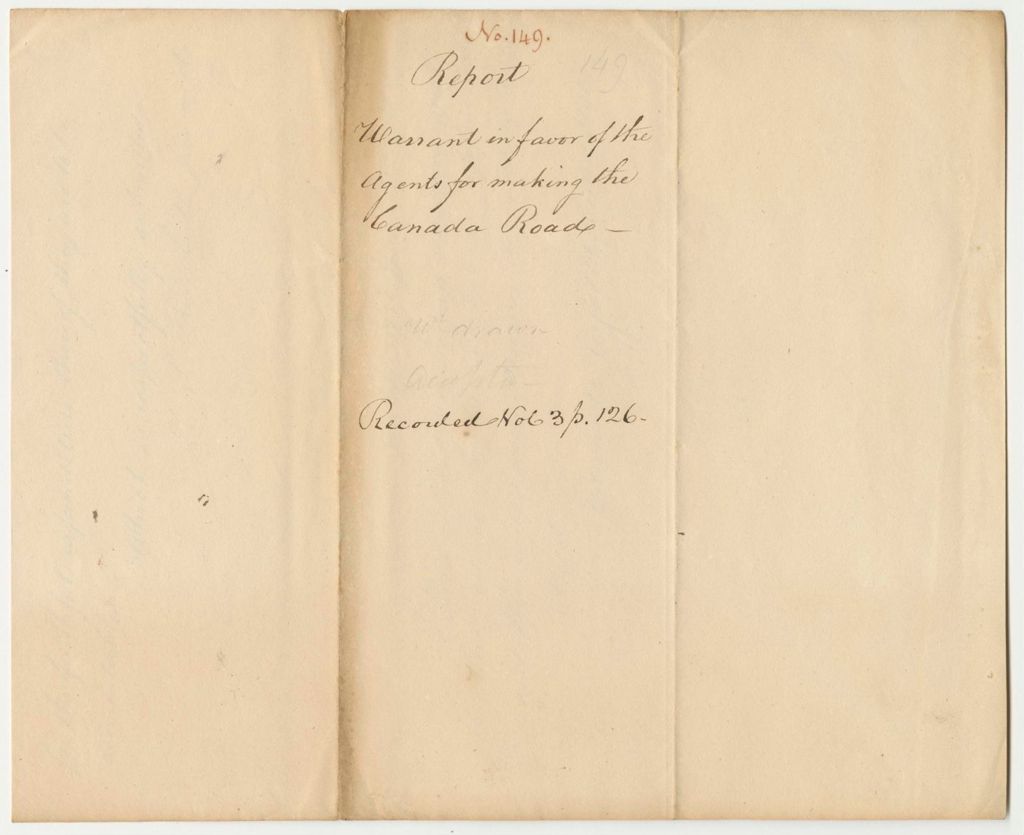 No. 149.
149
Report
Warrant in favor of the
Agents for making the
Canada Road –
Wt drawn
Recorded Vol 3 p. 126 –